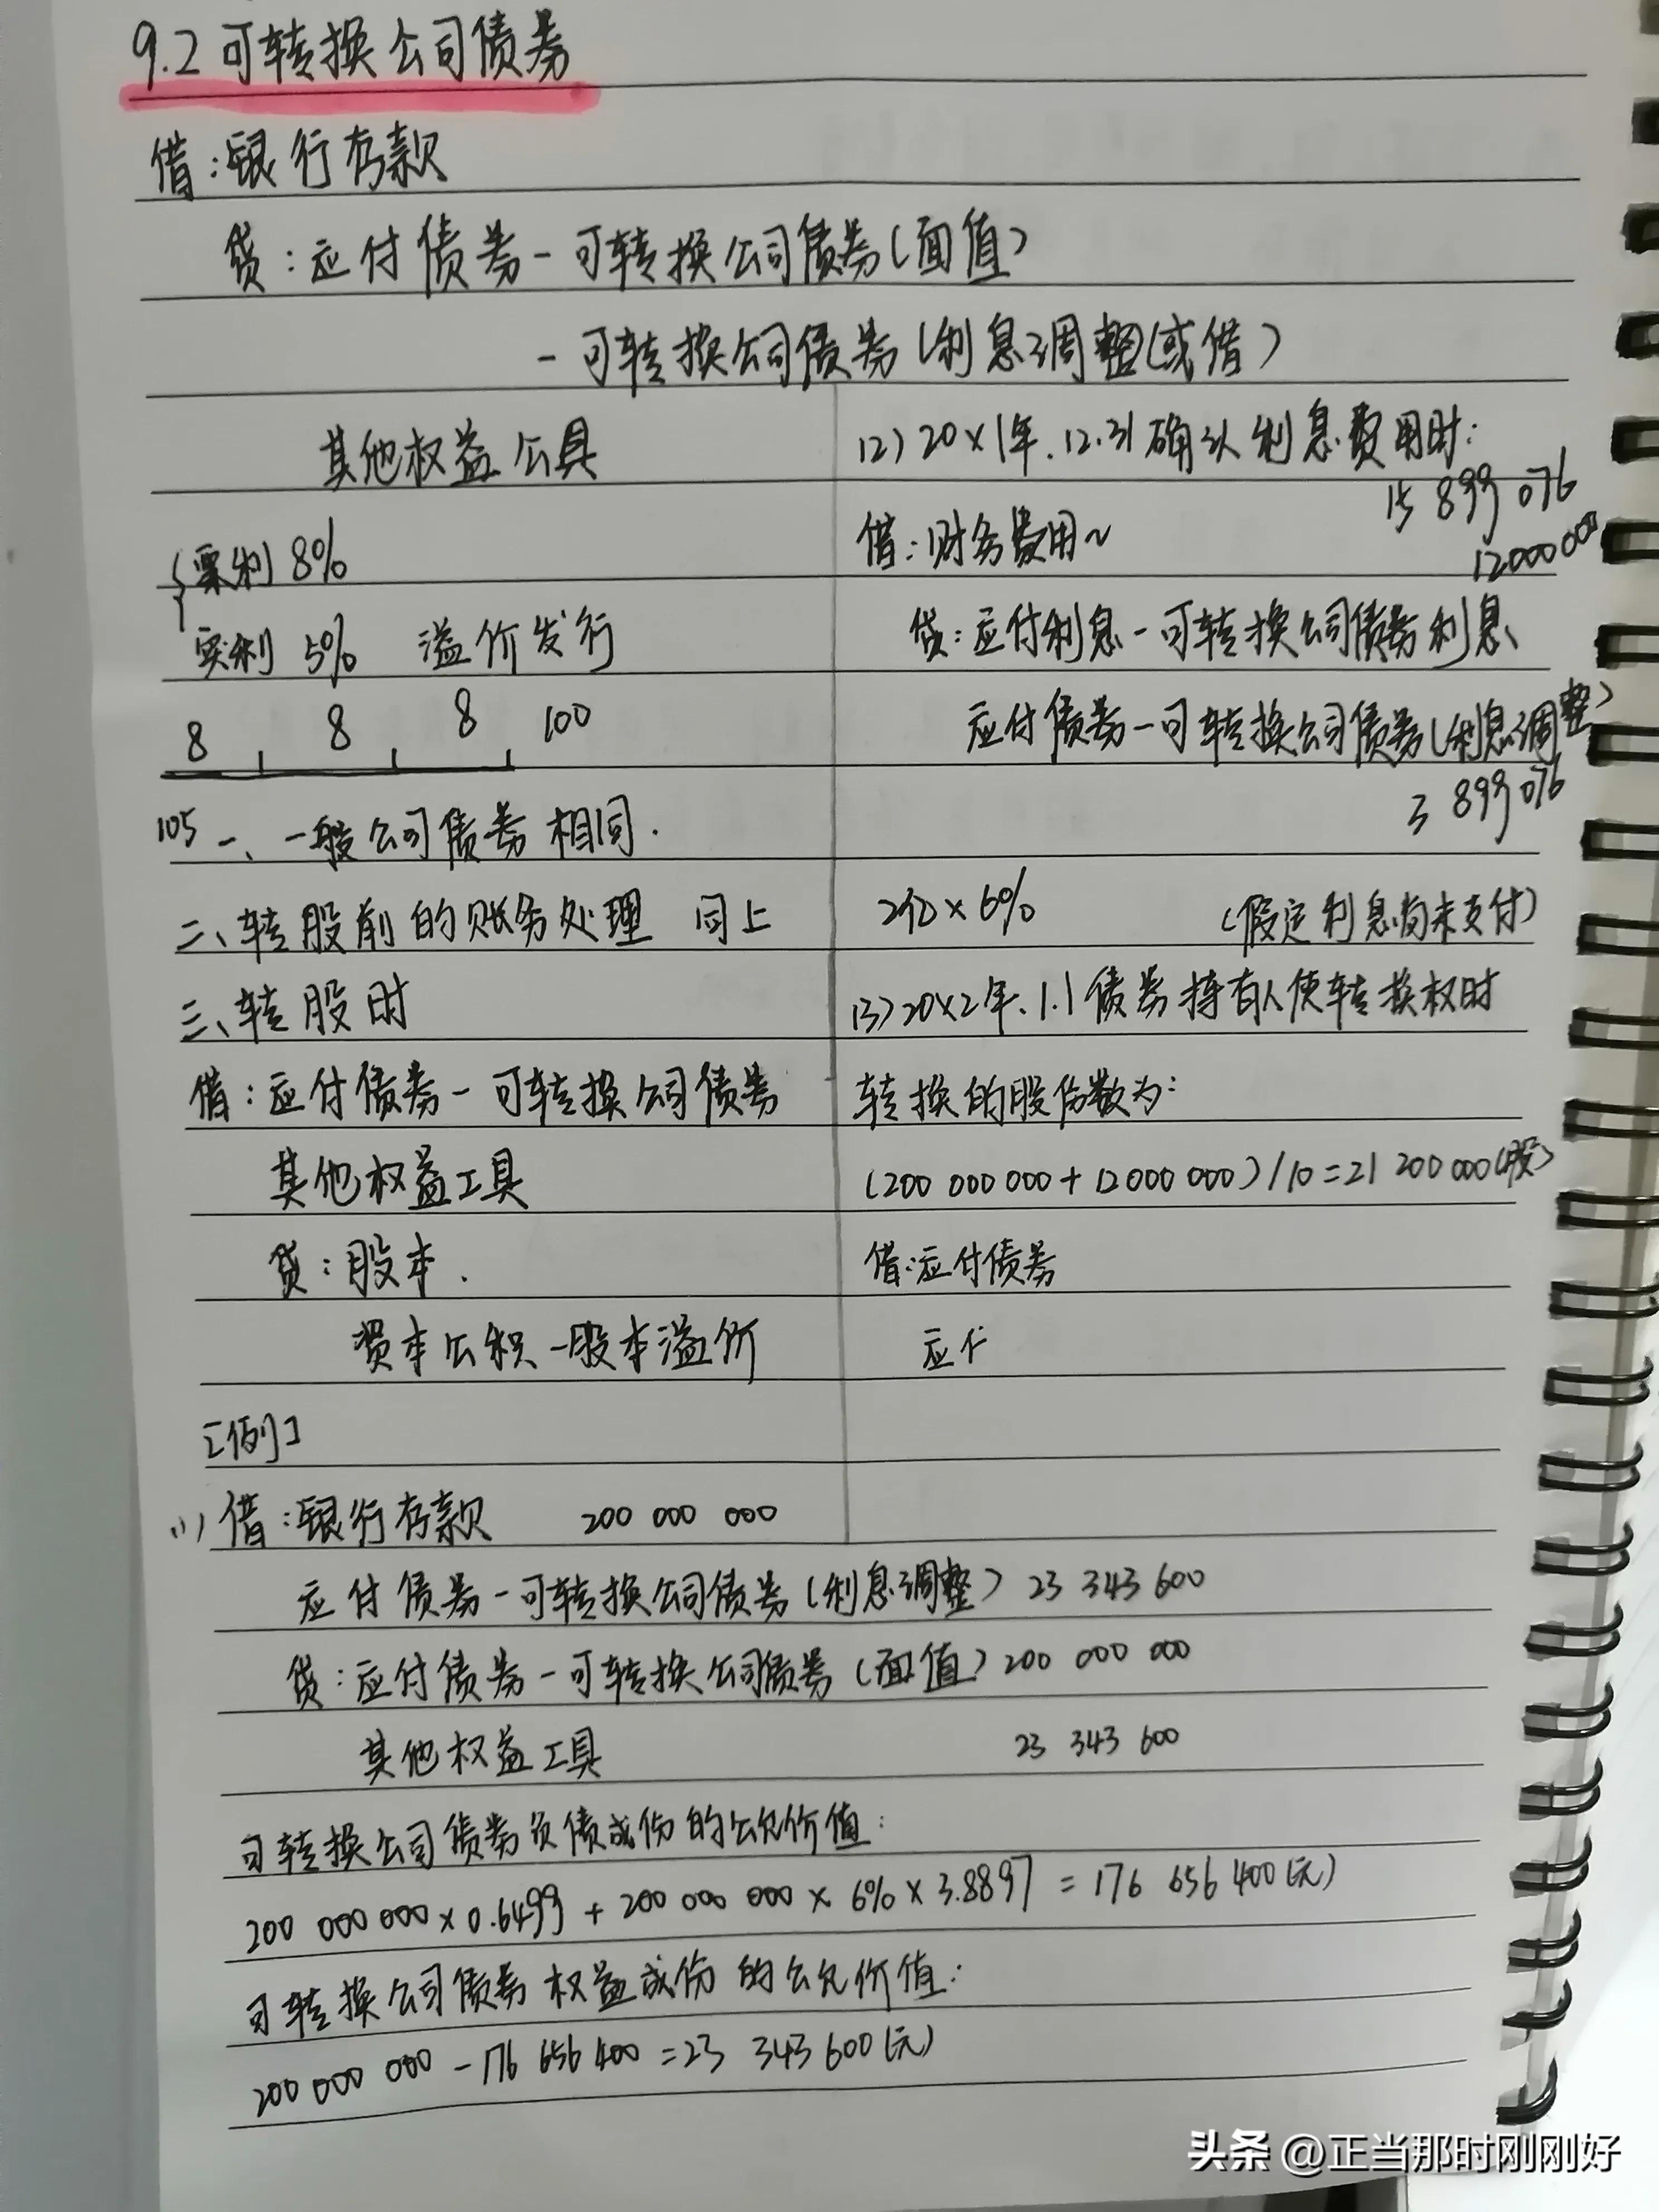 9.2可转换公司债券
借:银行存款
贷:应付债券-可转换公司债券(面值)
-可转换公司债券(利息调整(或借)
其他权益工具
票利 8%
实利 5% 溢价发行
8 8 8 100
105
一、一般公司债券相同.
二、转股前的账务处理 同上
三、转股时
借:应付债券-可转换公司债券
其他权益工具
贷:股本.
资本公积-股本溢价
[例]
(2)20×1年.12.31确认利息费用时:
15 899 076
借:财务费用~
12000000
贷:应付利息-可转换公司债券利息
应付债券-可转换公司债券(利息调整)
3 899 076
2亿×6% (假定利息尚未支付)
(3)20×2年.1.1债券持有人使转换权时
转换的股份数为:
(200 000 000+12000 000)/10=21 200 000(股)
借:应付债券
应付
(1)借:银行存款 200 000 000
应付债券-可转换公司债券(利息调整) 23 343 600
贷:应付债券-可转换公司债券(面值) 200 000 000
其他权益工具 23 343 600
可转换公司债券负债成份的公允价值:
200 000 000×0.6499+200 000 000×6%×3.8897=176 656 400(元)
可转换公司债券权益成份的公允价值:
200 000 000-176 656 400=23 343 600(元)
头条 @正当那时刚刚好